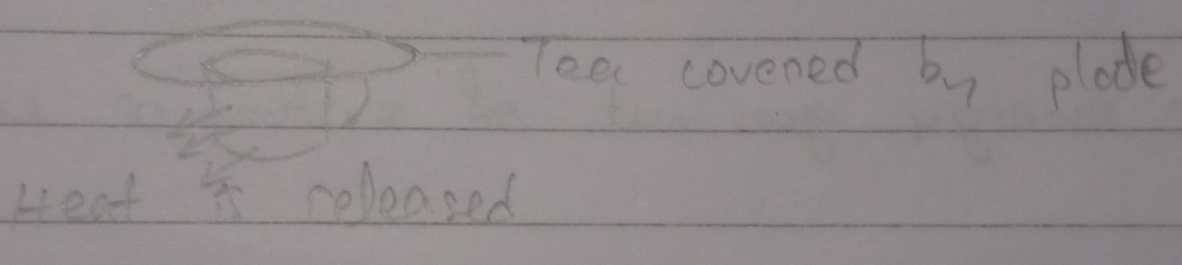 Tea covered by plade
Heat is released